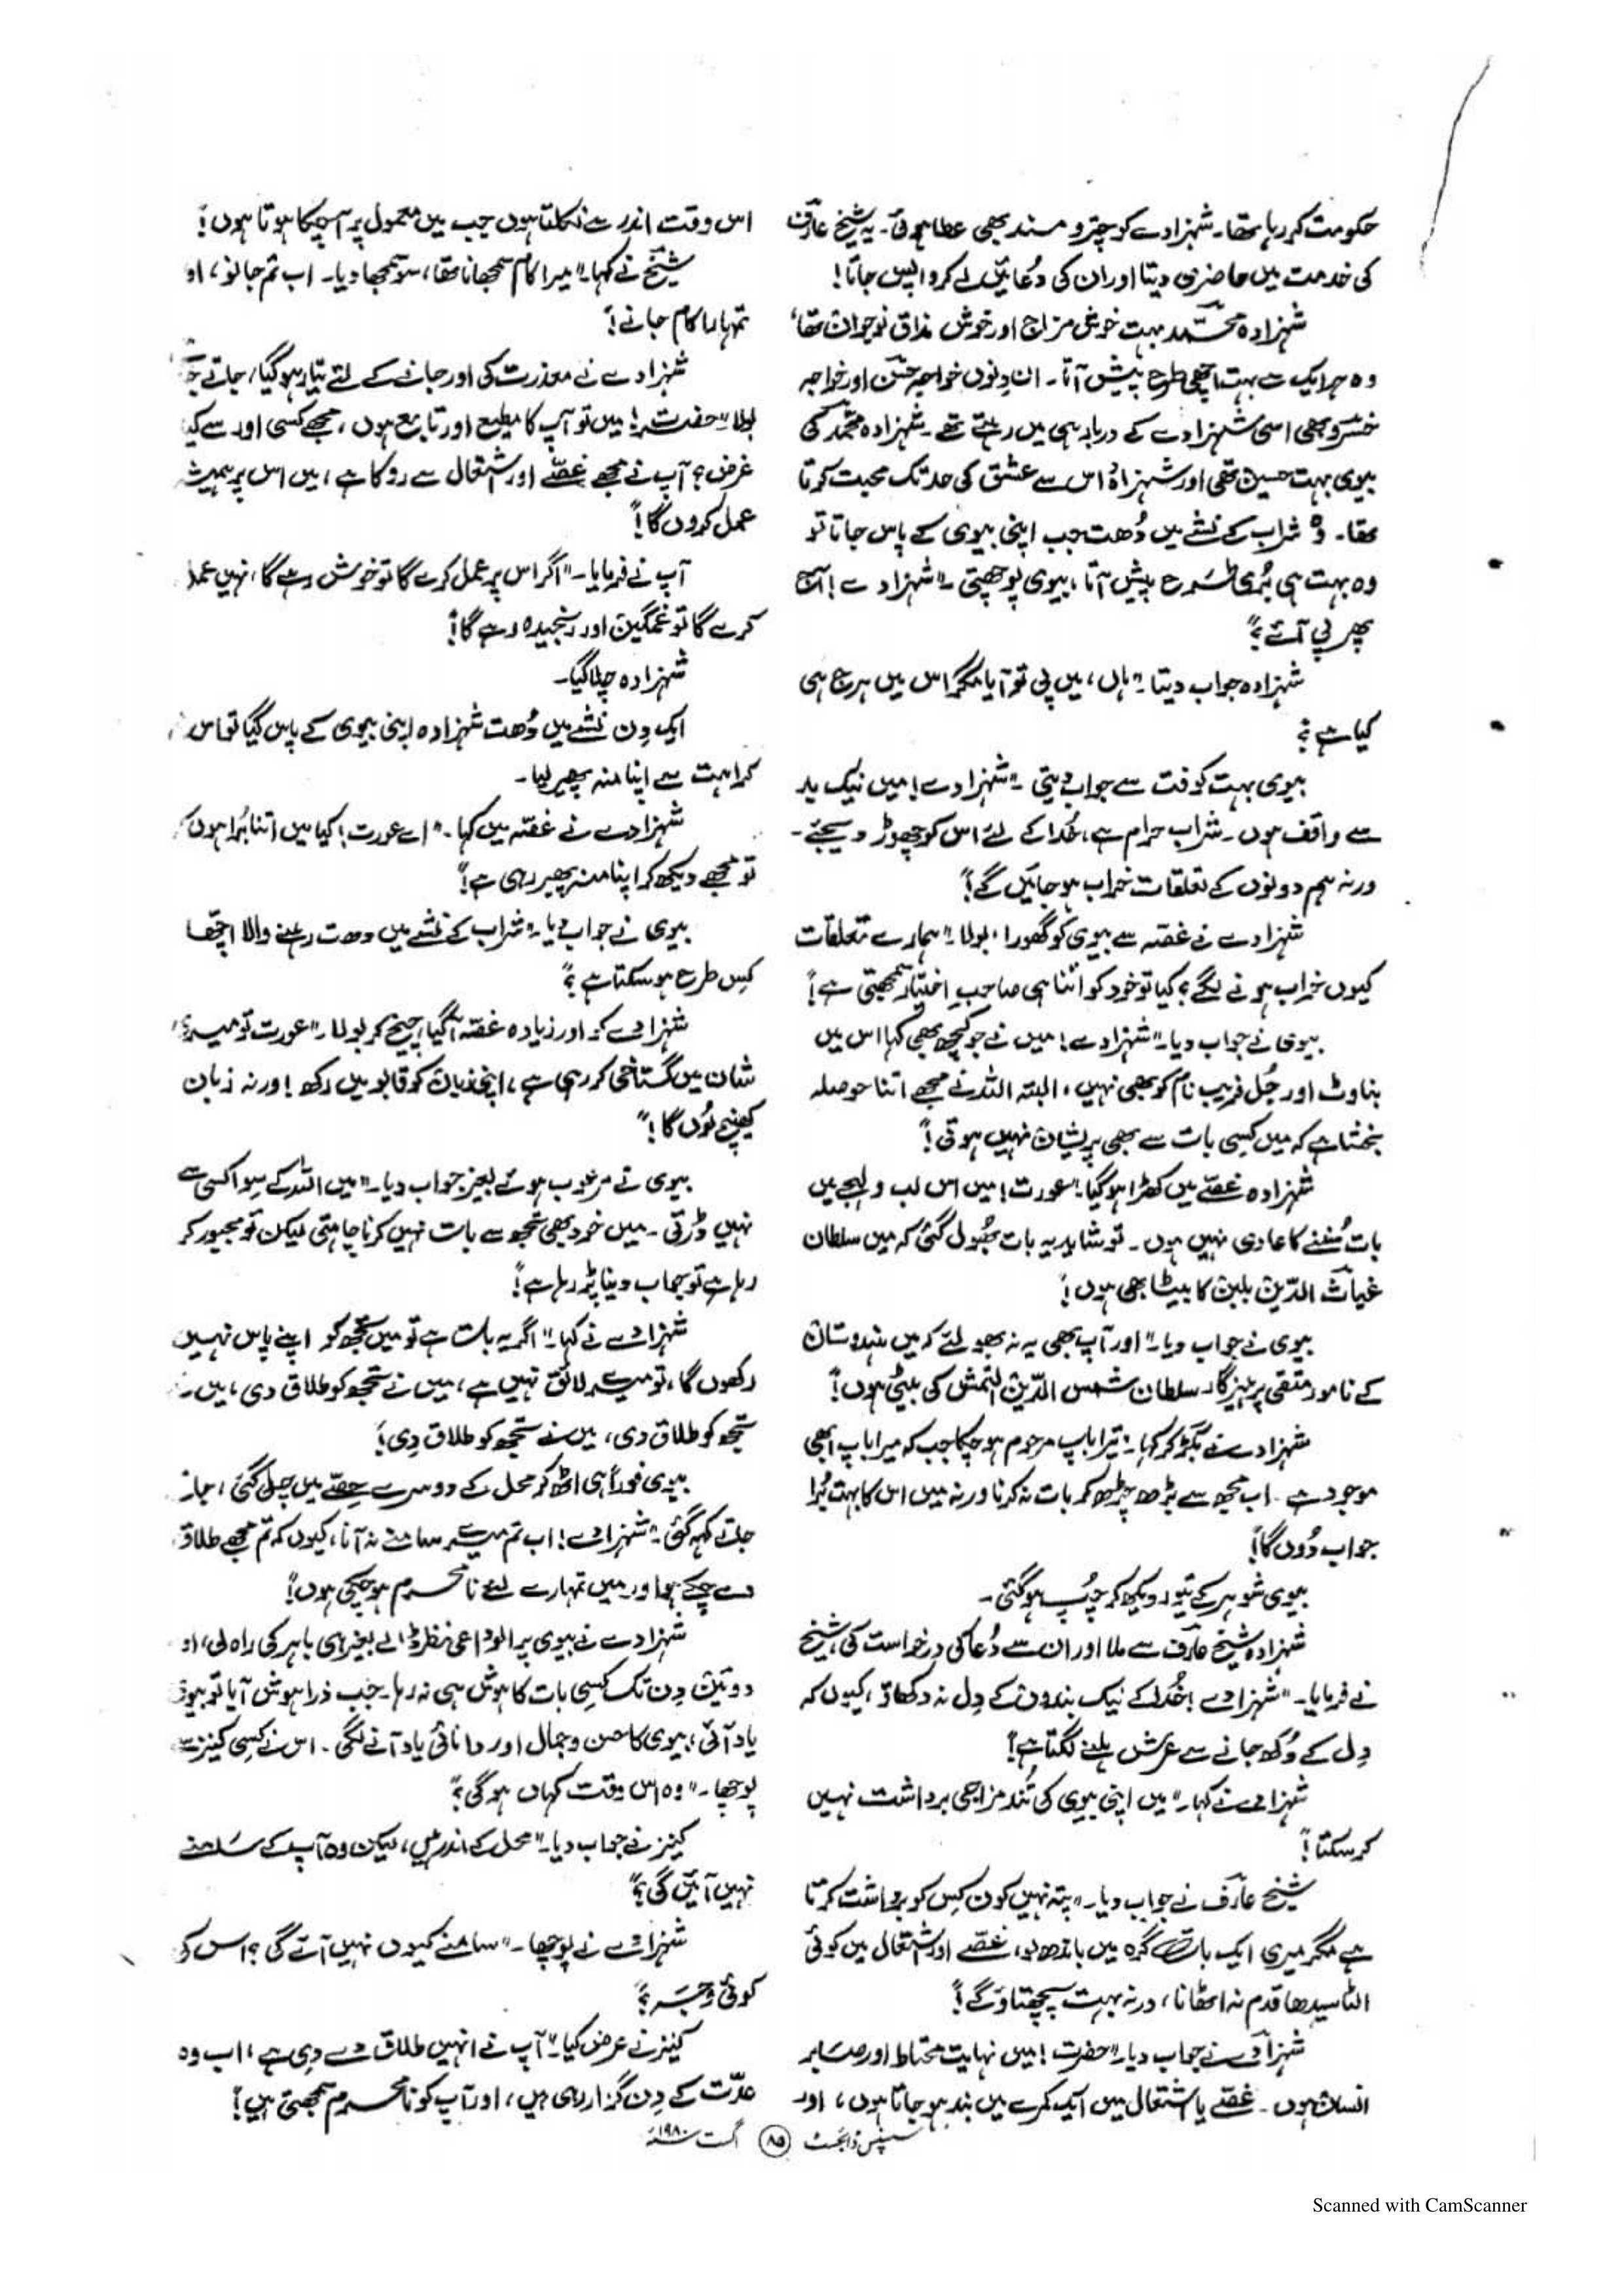 حکومت کر رہا تھا۔ شہزادے کو چتر و مسند بھی عطا ہوئی۔ یہ شیخ عارف
کی خدمت میں حاضری دیتا اور ان کی دُعائیں لے کر واپس جاتا!
شہزادہ محمّد بہت خوش مزاج اور خوش مذاق نوجوان تھا،
وہ ہر ایک سے بہت اچھی طرح پیش آتا۔ ان دِنوں خواجہ حسن اور خواجہ
خسرو بھی اسی شہزادے کے دربار ہی میں رہتے تھے۔ شہزادہ محمّد کی
بیوی بہت حسین تھی اور شہزادہ اس سے عشق کی حد تک محبت کرتا
تھا۔ وہ شراب کے نشے میں دُھت جب اپنی بیوی کے پاس جاتا تو
وہ بہت ہی بُری طرح پیش آتا، بیوی پوچھتی۔ "شہزادے! آج
پھر پی آئے؟"
شہزادہ جواب دیتا۔ "ہاں، میں پی تو آیا مگر اس میں ہرج ہی
کیا ہے؟
بیوی بہت کوفت سے جواب دیتی۔ "شہزادے! میں نیک بد
سے واقف ہوں۔ شراب حرام ہے، خُدا کے لئے اس کو چھوڑ دیجئے۔
ورنہ ہم دونوں کے تعلقات خراب ہو جائیں گے!"
شہزادے نے غصّہ سے بیوی کو گھورا، بولا۔ "ہمارے تعلقات
کیوں خراب ہونے لگے؟ کیا تو خود کو اتنا ہی صاحبِ اختیار سمجھتی ہے!"
بیوی نے جواب دیا۔ "شہزادے! میں نے جو کچھ بھی کہا اس میں
بناوٹ اور جُل فریب نام کو بھی نہیں، البتہ اللہ نے مجھے اتنا حوصلہ
بخشا ہے کہ میں کسِی بات سے بھی پریشان نہیں ہوتی!"
شہزادہ غصّے میں کھڑا ہو گیا۔ "عورت! میں اس لب و لہجے میں
بات سُننے کا عادی نہیں ہوں۔ تو شاید یہ بات بھُول گئی کہ میں سلطان
غیاث الدّین بلبن کا بیٹا بھی ہوں!"
بیوی نے جواب دیا۔ "اور آپ بھی یہ نہ بھولئے کہ میں ہندوستان
کے نامور متقی پرہیزگار سلطان شمس الدّین التمش کی بیٹی ہوں!"
شہزادے نے بگڑ کر کہا۔ "تیرا باپ مرحوم ہو چکا جب کہ میرا باپ ابھی
موجود ہے۔ اب مجھ سے بڑھ چڑھ کر بات نہ کرنا ورنہ میں اس کا بہت بُرا
جواب دُوں گا!"
بیوی شوہر کے تیور دیکھ کر چُپ ہو گئی۔
شہزادہ شیخ عارف سے ملا اور ان سے دُعا کی درخواست کی، شیخ
نے فرمایا۔ "شہزادے! خُدا کے نیک بندوں کے دِل نہ دکھاؤ، کیوں کہ
دِل کے دُکھ جانے سے عرش ہلنے لگتا ہے!"
شہزادے نے کہا۔ "میں اپنی بیوی کی تُند مزاجی برداشت نہیں
کر سکتا!"
شیخ عارف نے جواب دیا۔ "پتہ نہیں کون کِس کو برداشت کرتا
ہے مگر میری ایک بات گرہ میں باندھ لو، غصّے اور اشتعال میں کوئی
الٹا سیدھا قدم نہ اٹھانا، ورنہ بہت پچھتاؤ گے!"
شہزادے نے جواب دیا۔ "حضرت! میں نہایت محتاط اور صابر
انسان ہوں۔ غصّے یا اشتعال میں ایک کمرے میں بند ہو جاتا ہوں، اور
اس وقت اندر سے نکلتا ہوں جب میں معمول پر آ چکا ہوتا ہوں!"
شیخ نے کہا۔ "میرا کام سمجھانا تھا، سو سمجھا دیا۔ اب تم جانو، او
تمہارا کام جانے!"
شہزادے نے معذرت کی اور جانے کے لئے تیار ہو گیا، جاتے
بولا۔ "حضرت! میں تو آپ کا مطیع اور تابع ہوں، مجھے کسی اور سے کیا
غرض؟ آپ نے مجھے غصّے اور اشتعال سے روکا ہے، میں اس پر ہمیشہ
عمل کروں گا!"
آپ نے فرمایا۔ "اگر اس پر عمل کرے گا تو خوش رہے گا، نہیں عمل
کرے گا تو غمگین اور رنجیدہ رہے گا!"
شہزادہ چلا گیا۔
ایک دِن نشے میں دُھت شہزادہ اپنی بیوی کے پاس گیا تو اس
کراہت سے اپنا منہ پھیر لیا۔
شہزادے نے غصّہ میں کہا۔ "اے عورت! کیا میں اتنا بُرا ہوں کہ
تو مجھے دیکھ کر اپنا منہ پھیر رہی ہے!"
بیوی نے جواب دیا۔ "شراب کے نشے میں دھت رہنے والا اچھّا
کِس طرح ہو سکتا ہے؟"
شہزادے کو اور زیادہ غصّہ آ گیا، چیخ کر بولا۔ "عورت تو میری
شان میں گستاخی کر رہی ہے، اپنی زبان کو قابو میں رکھ! ورنہ زبان
کھینچ لُوں گا!"
بیوی نے مرعوب ہوئے بغیر جواب دیا۔ "میں اللہ کے سِوا کسی سے
نہیں ڈرتی۔ میں خود بھی تجھ سے بات نہیں کرنا چاہتی لیکن تو مجبور کر
رہا ہے تو جواب دینا پڑ رہا ہے!"
شہزادے نے کہا۔ "اگر یہ بات ہے تو میں تجھ کو اپنے پاس نہیں
رکھوں گا، تو میرے لائق نہیں ہے، میں نے تجھ کو طلاق دی، میں نے
تجھ کو طلاق دی، میں نے تجھ کو طلاق دِی!"
بیوی فوراً ہی اٹھ کر محل کے دوسرے حِصّے میں چلی گئی،
جاتے کہہ گئی۔ "شہزادے! اب تم میرے سامنے نہ آنا، کیوں کہ تم مجھے طلاق
دے چکے ہو اور میں تمہارے لئے نامحرم ہو چکی ہوں!"
شہزادے نے بیوی پر الوداعی نظر ڈالے بغیر ہی باہر کی راہ لی، او
دو تین دِن تک کسِی بات کا ہوش ہی نہ رہا۔ جب ذرا ہوش آیا تو بیوی
یاد آئی، بیوی کا حسن و جمال اور دانائی یاد آنے لگی۔ اس نے کسِی کنیز سے
پوچھا۔ "وہ اس وقت کہاں ہو گی؟"
کنیز نے جواب دیا۔ "محل کے اندر ہیں، لیکن وہ آپ کے سامنے
نہیں آئیں گی؟"
شہزادے نے پوچھا۔ "سامنے کیوں نہیں آئے گی؟ اس کی
کوئی وجہ؟"
کنیز نے عرض کیا۔ "آپ نے انہیں طلاق دے دِی ہے، اب وہ
عدّت کے دِن گزار رہی ہیں، اور آپ کو نامحرم سمجھتی ہیں!"
سسپنس ڈائجسٹ ۸۵ اگست ۱۹۸۰ء
Scanned with CamScanner